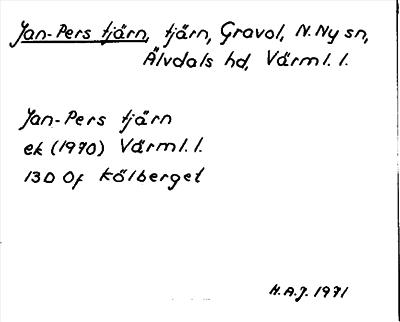 Jan-Pers tjärn, tjärn, Gravol, N. Ny sn,
Älvdals hd, Värml. l.
Jan-Pers tjärn
ek (1970) Värml. l.
13D Of Kölberget
H.A.J. 1971